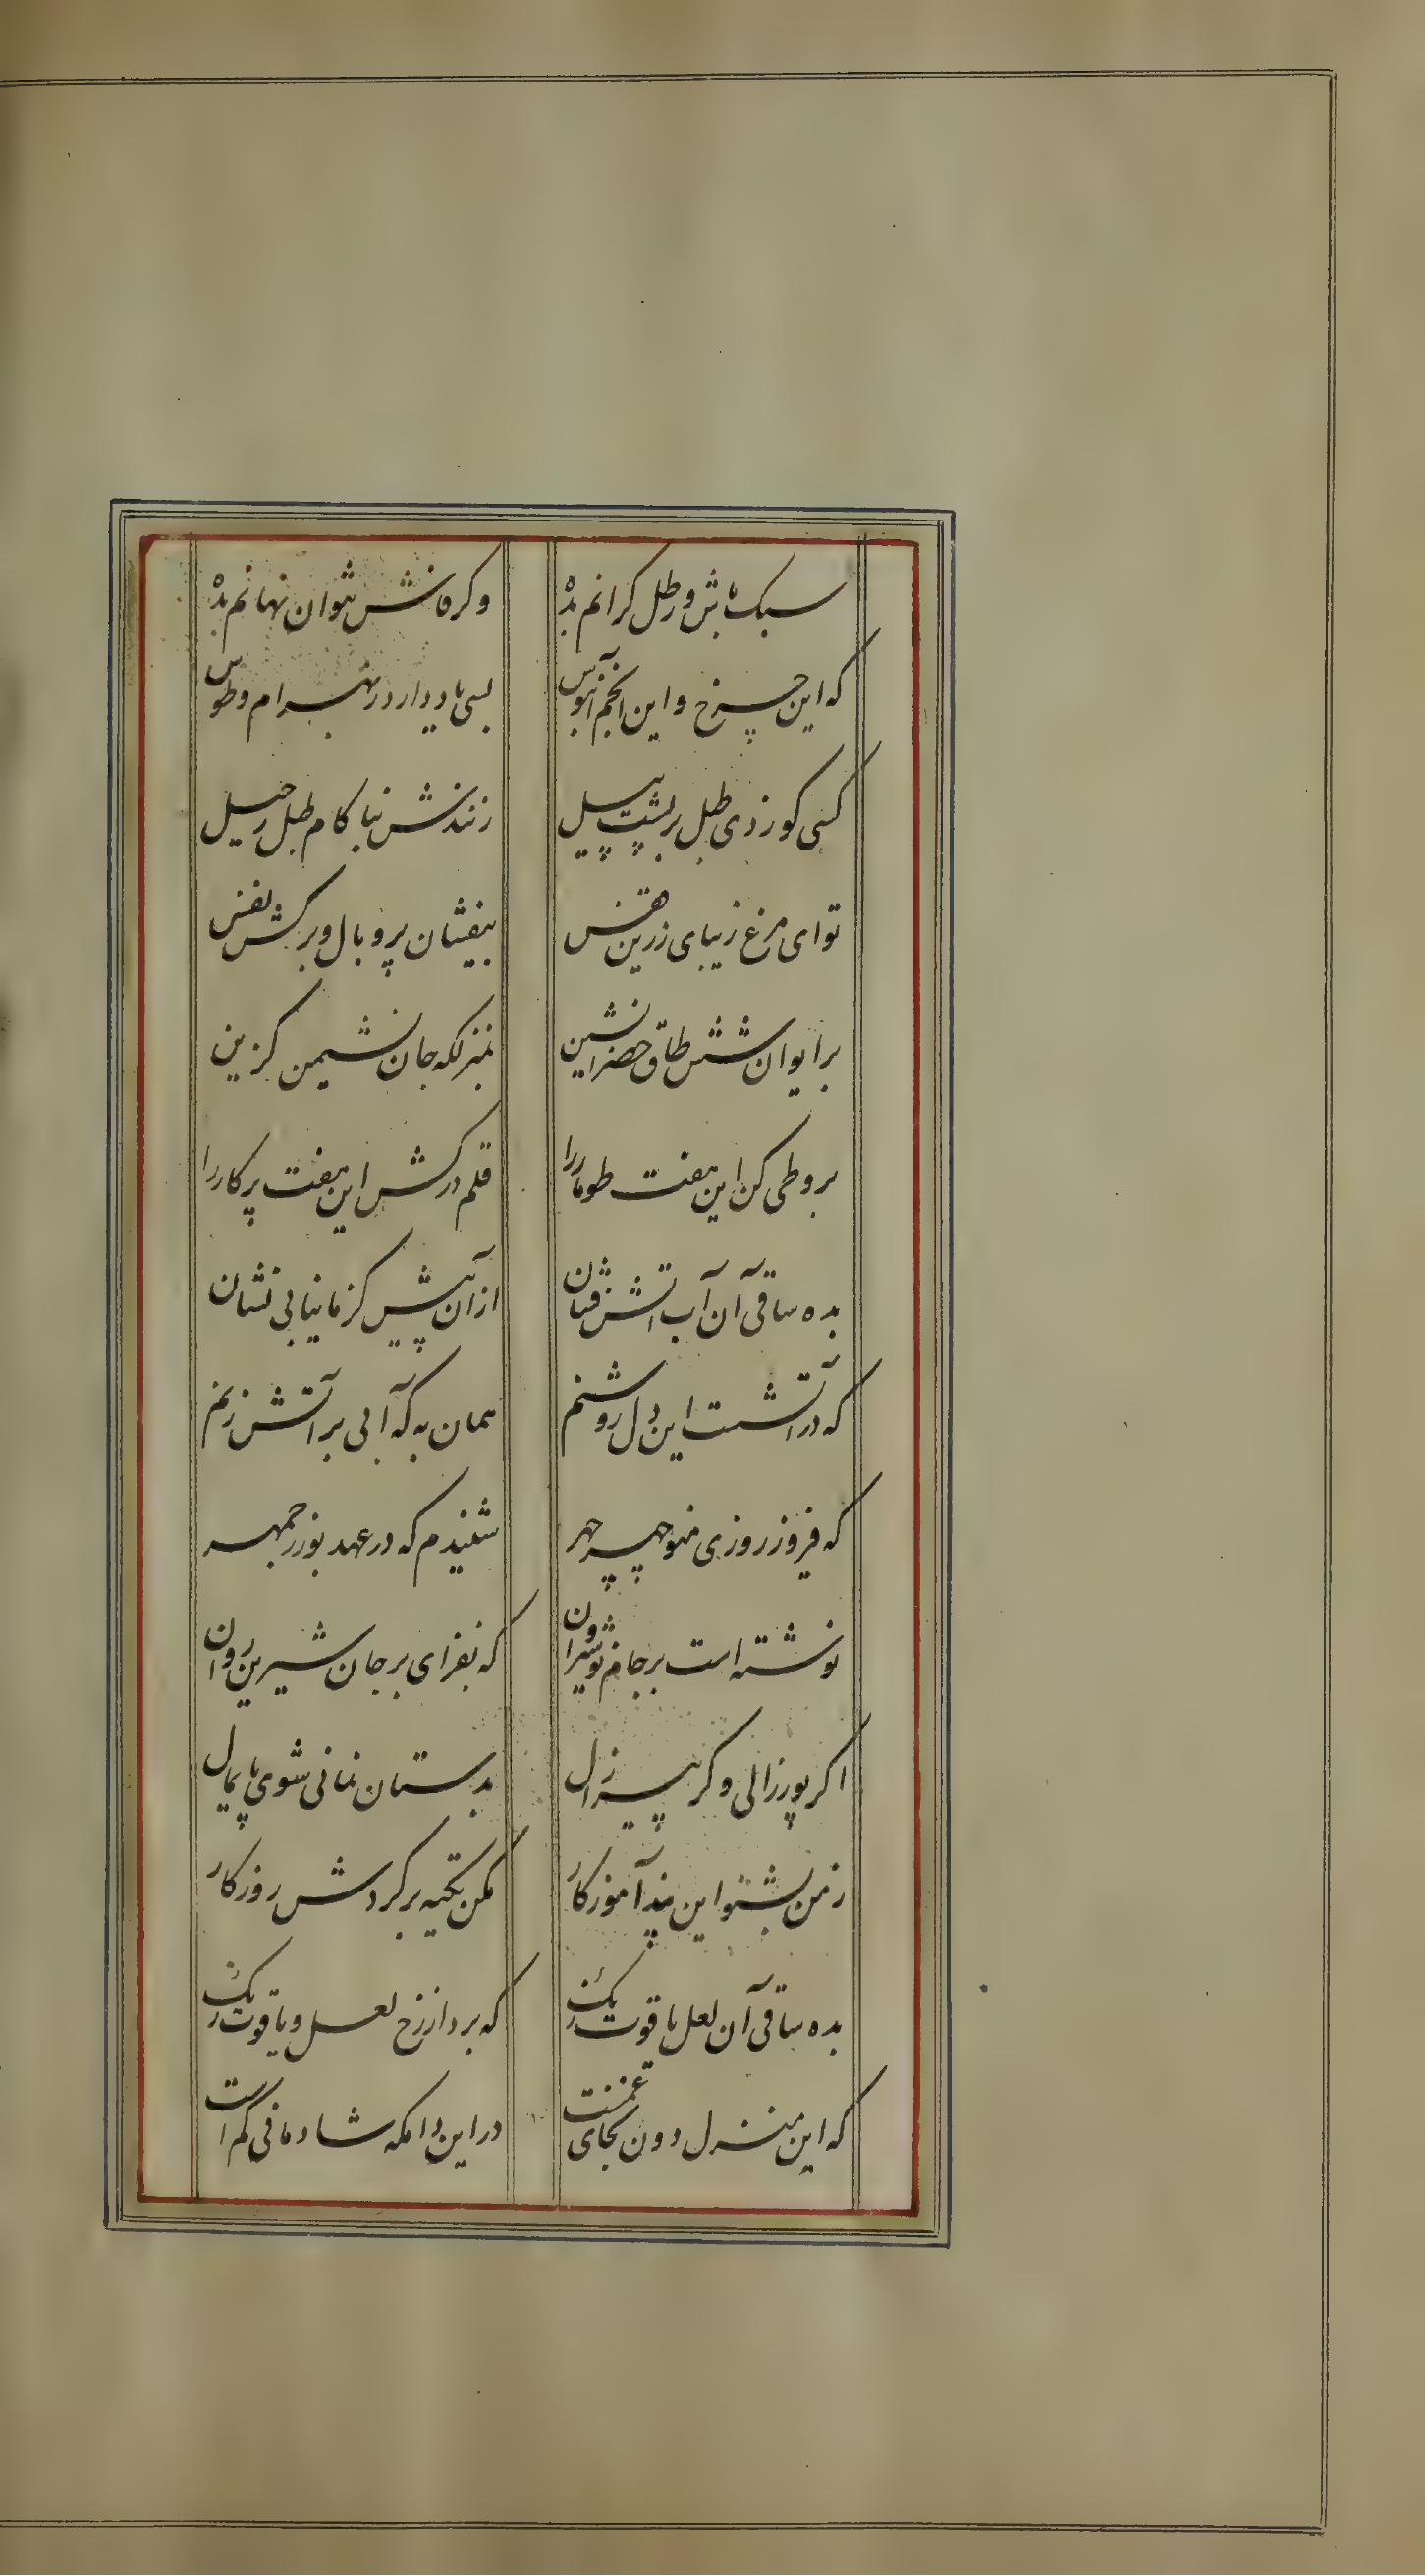 سبک باش و رطل کرانم بده وکر فاش نتوان نهانم بده
که این چرخ و این انجم آبنوس بسی یاد دارد ز بهرام و طوس
کسی کو زدی طبل بر پشت پیل زنندش بناکام طبل رحیل
تو ای مرغ زیبای زرین قفس بیفشان پر و بال و برکش نفس
بر ایوان شش طاق خضرا نشین بمنزلکه جان نشیمن کزین
برو طی کن این هفت طومار را قلم درکش این هفت پرکار را
بده ساقی آن آب آتش فشان از آن پیش کز ما نیابی نشان
که در آتشست این دل روشنم همان به که آبی بر آتش زنم
که فیروز روزی منوچهر چهر شنیدم که در عهد بوزرجمهر
نوشته است بر جام نوشیروان که بفزای بر جان شیرین روان
اکر پور زالی وکر پیر زال بدستان نمانی شوی پایمال
ز من بشنو این پند آموزکار مکن تکیه بر کردش روزکار
بده ساقی آن لعل یاقوت رنک که برد از رخ لعل و یاقوت رنک
که این منزل دون بجای غمست در این دامکه شادمانی کم است